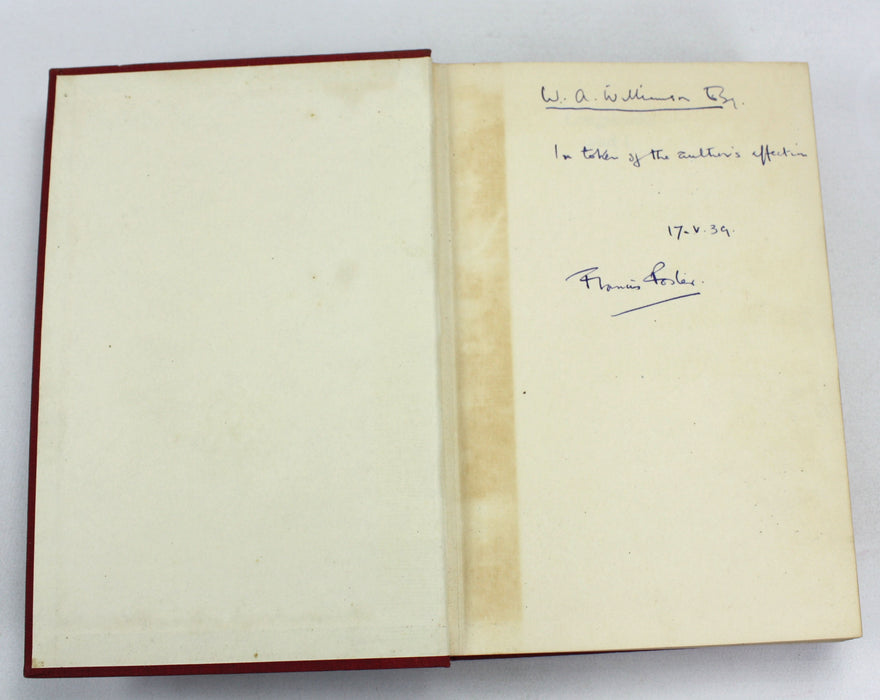 W. A. Williamson Esq.
In token of the author's affection
17.V.39.
Francis Foster.